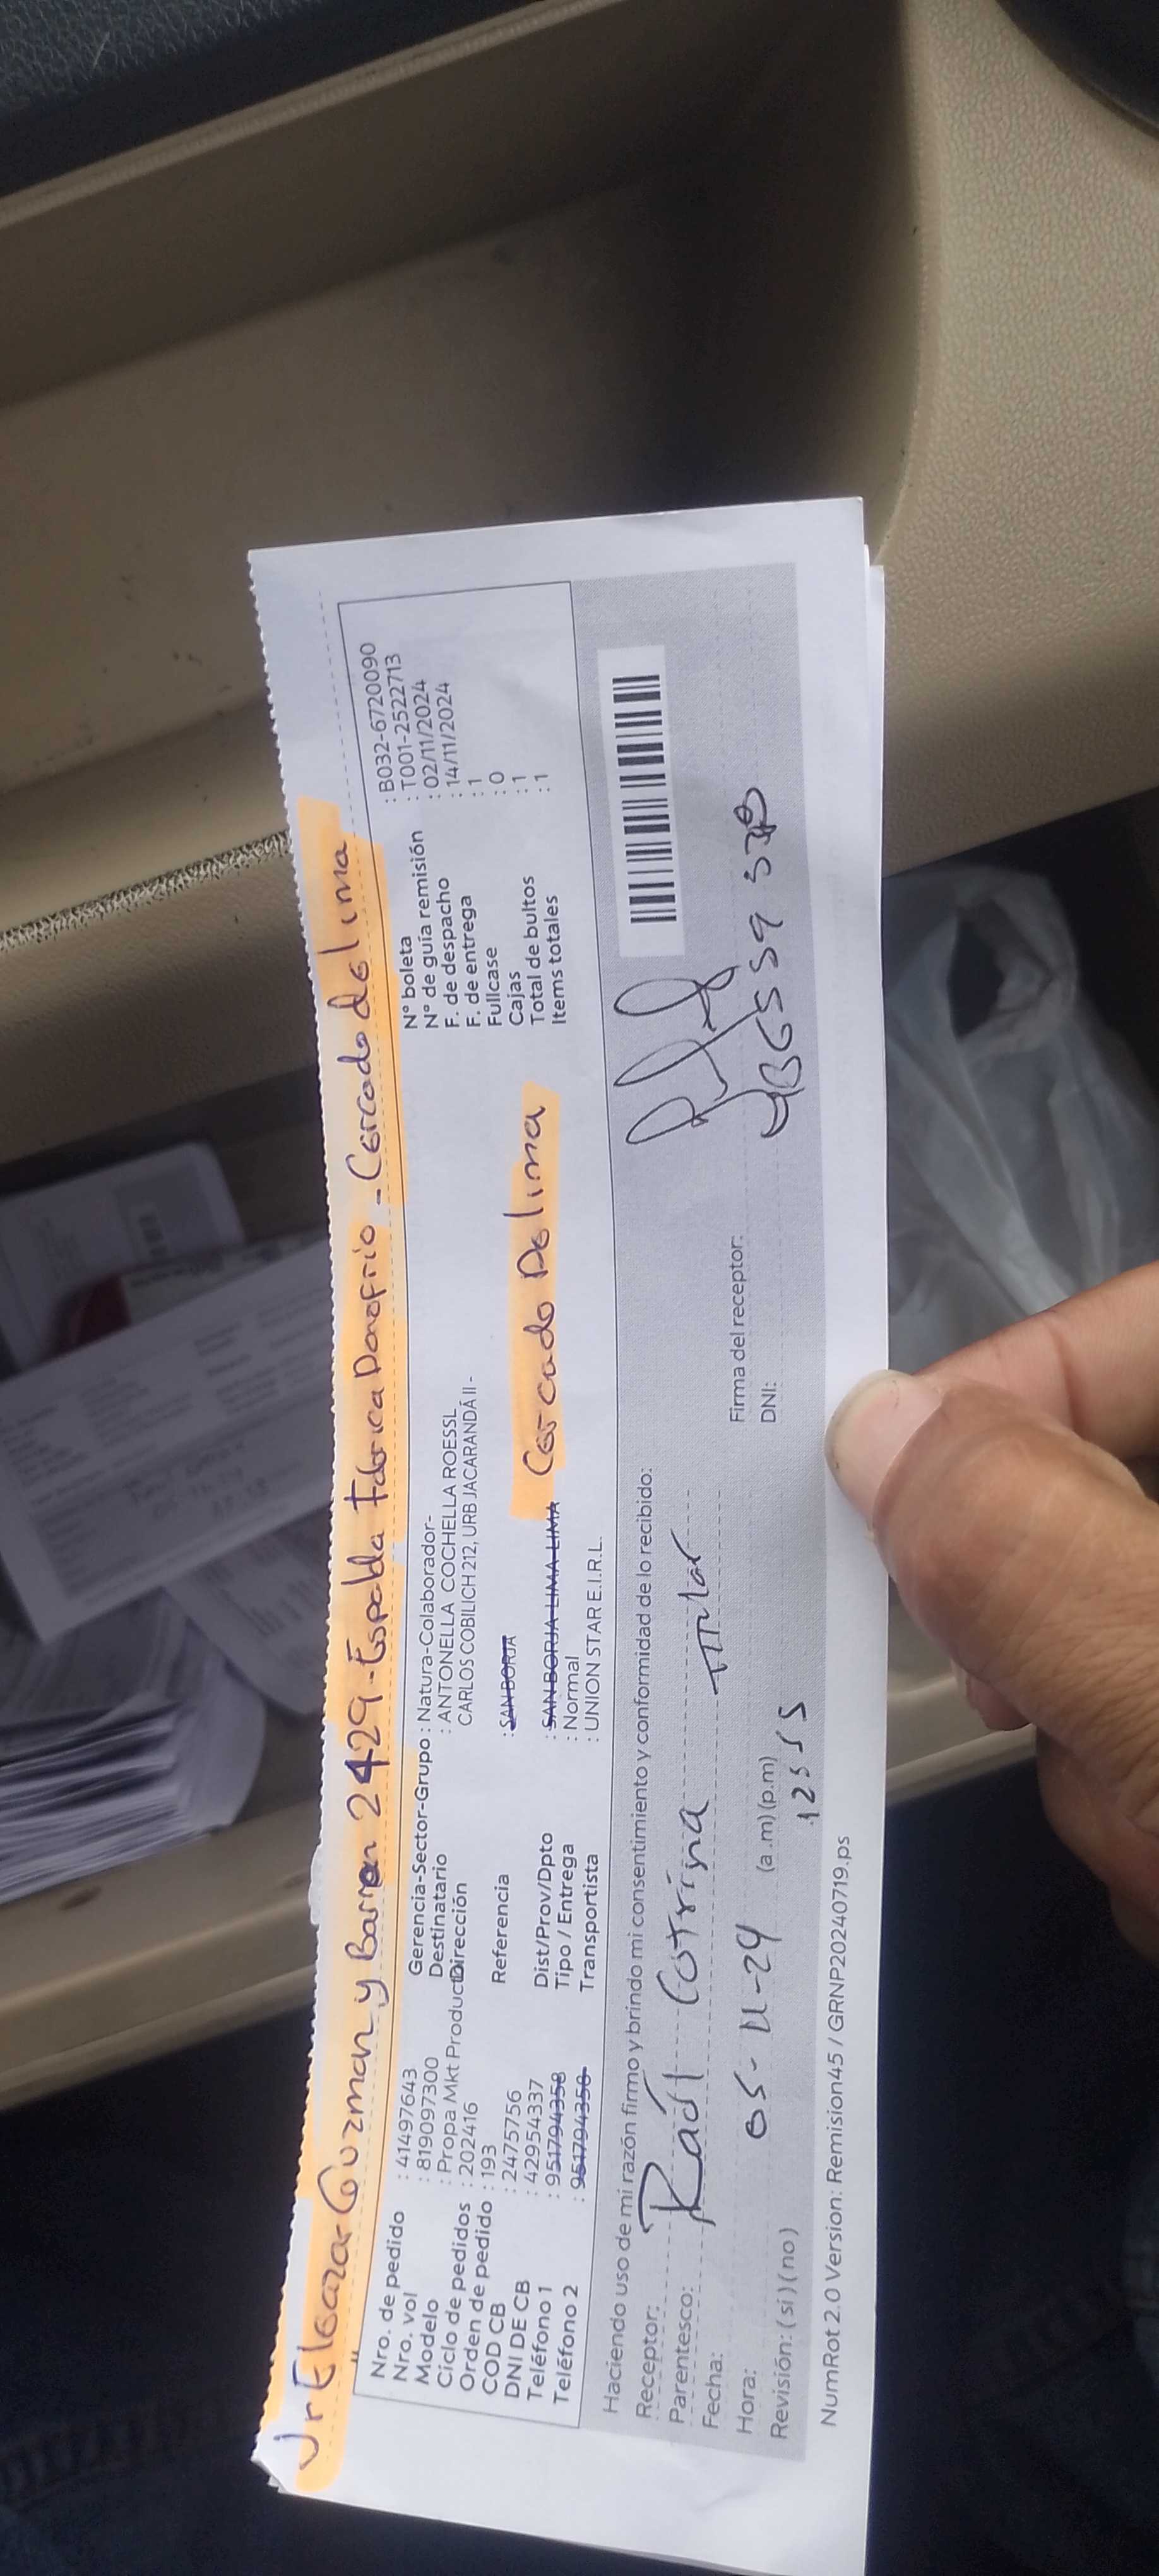 Jr Eleazar Guzman y Barron 2429 - Espalda Fabrica Donofrio - Cercado de lima
Nro. de pedido : 41497643
Nro. vol : 819097300
Modelo : Propa Mkt Product
Ciclo de pedidos : 202416
Orden de pedido : 193
COD CB : 2475756
DNI DE CB : 42954337
Teléfono 1 : 951794358
Teléfono 2 : 951794358
Gerencia-Sector-Grupo : Natura-Colaborador-
Destinatario : ANTONELLA COCHELLA ROESSL
Dirección CARLOS COBILICH 212, URB JACARANDÁ II -
Referencia : SAN BORJA
Dist/Prov/Dpto : SAN BORJA-LIMA-LIMA Cercado De lima
Tipo / Entrega : Normal
Transportista : UNION STAR E.I.R.L.
N° boleta : B032-6720090
N° de guía remisión : T001-2522713
F. de despacho : 02/11/2024
F. de entrega : 14/11/2024
Fullcase : 1
Cajas : 0
Total de bultos : 1
Items totales : 1
Haciendo uso de mi razón firmo y brindo mi consentimiento y conformidad de lo recibido:
Receptor: Raúl Cotrina
Parentesco: Titular
Fecha: 05-11-24
Hora: (a.m) (p.m) 1255
Revisión: ( si ) ( no )
Firma del receptor:
DNI:
NumRot 2.0 Version: Remision45 / GRNP20240719.ps